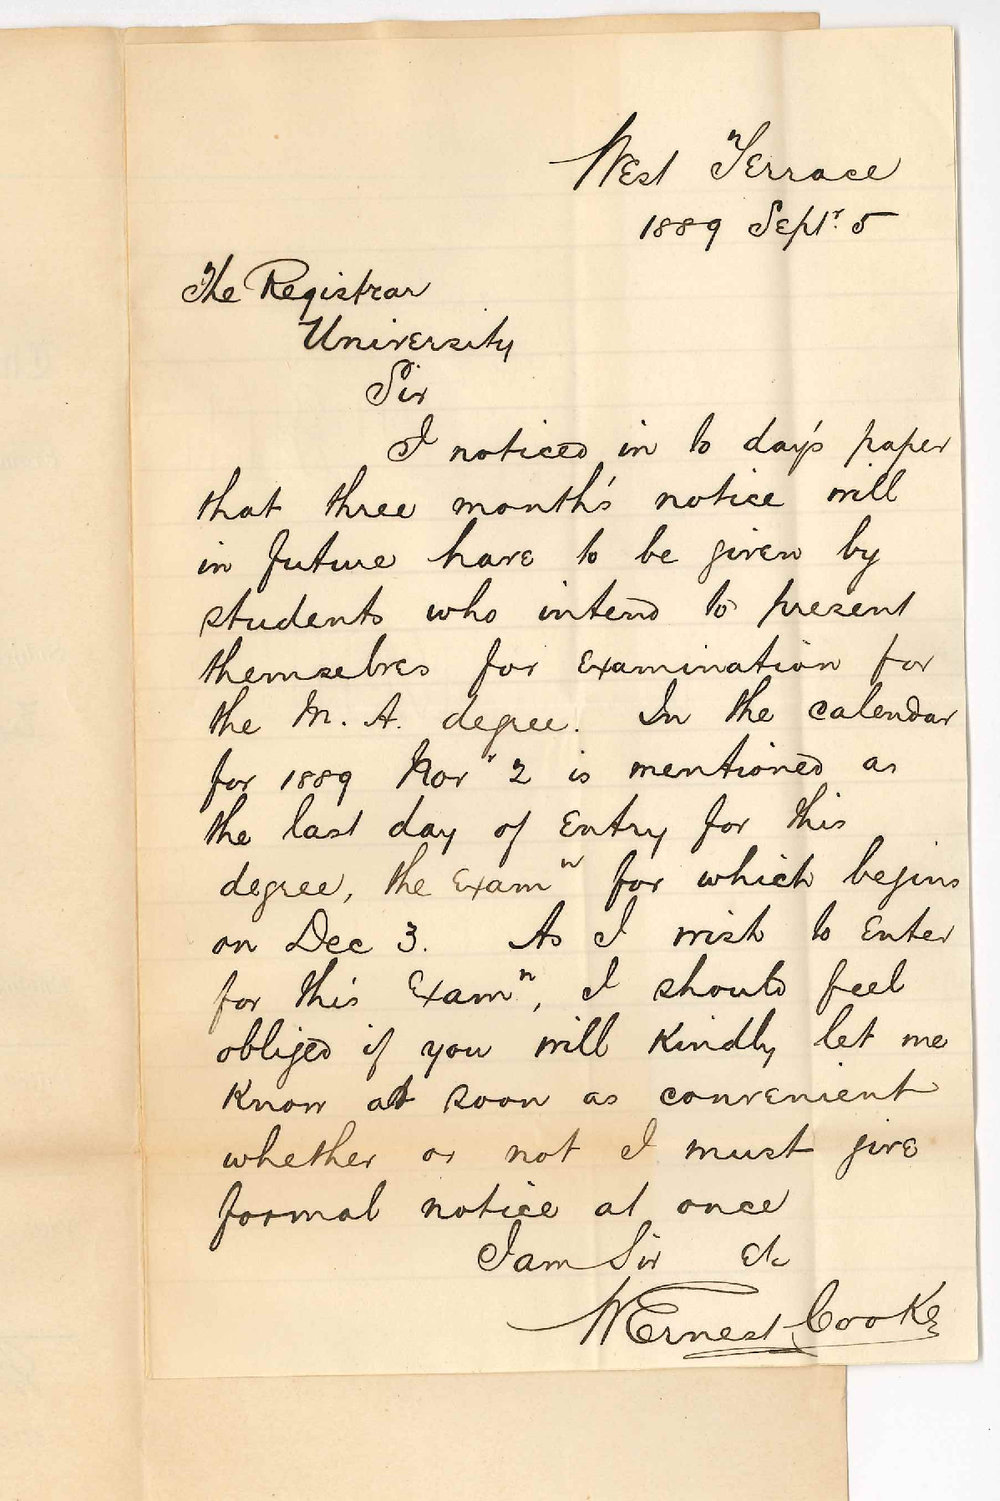 West Terrace
1889 Septr. 5
The Registrar
University
Sir
I noticed in to day's paper
that three month's notice will
in future have to be given by
students who intend to present
themselves for examination for
the M. A. degree. In the calendar
for 1889 Novr 2 is mentioned as
the last day of Entry for this
degree, the Examn for which begins
on Dec 3. As I wish to Enter
for this Examn, I should feel
obliged if you will kindly let me
know as soon as convenient
whether or not I must give
formal notice at once
I am Sir &c
W Ernest Cooke